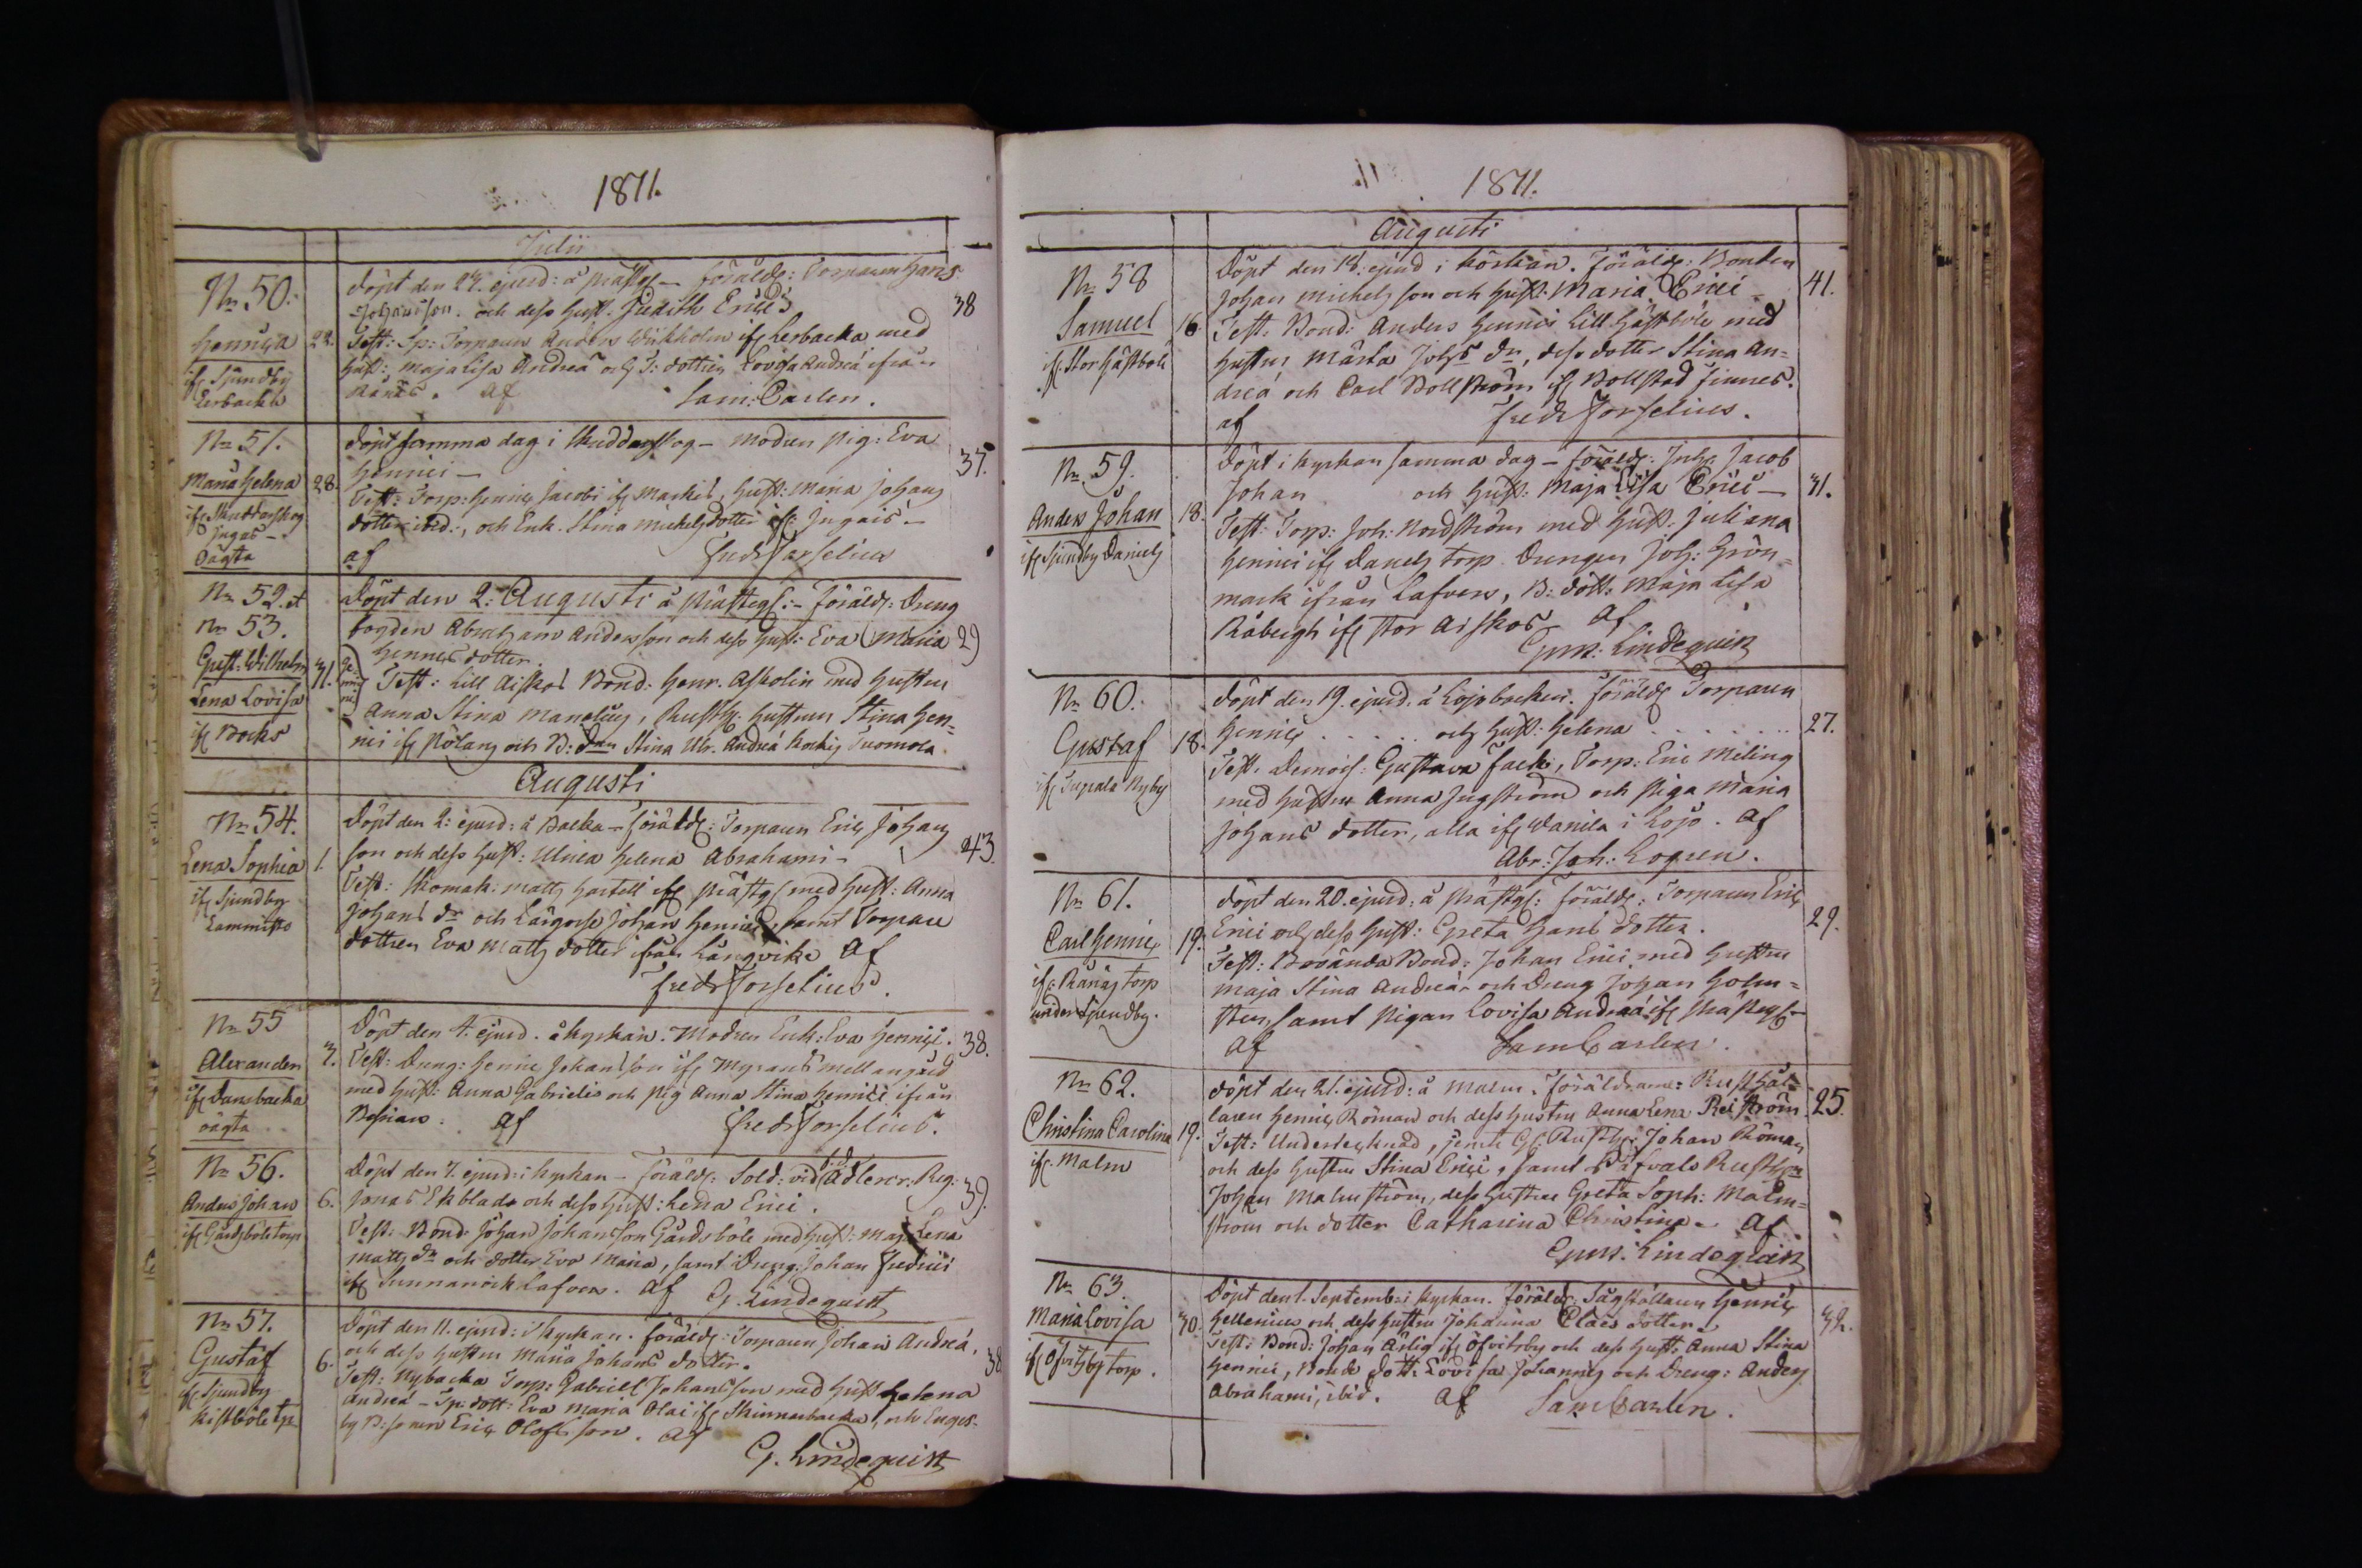 1811.
Julii
No 50.
Henrica
if. Sjundby
Lerbacka
22.
döpt den 24. ejusd: å prästg. föräldr: Torparen Hans
Johansson och dess Hust. Judith Erics
Test: Sp: Torparen Anders Wikholm if. Lerbacka med
Hust: Maja Lisa Andreä och T: dottren Lovisa Andreä ifrån
af Sam: Carlen.
38
No 51.
Maria Helena
if Skuddarskog
oägta
28.
döpt samma dag i Skuddarskog - modren Pig: Eva
Henrici
Test: Torp: Henric Jacobi if. Hust: Maria Johans
dotter ibid:, och Enk. Stina Michelsdotter if.
af Fredr Forselius
37.
No 52. et
No 53.
Gust. Wilhelm
Lena Lovisa
if Bocks
31.
Gemini
döpt den 2: Augusti å Prästeg: föräldr: Dreng
fogden Abraham Andersson och dess Hust: Eva Maria
Henrics dotter.
Test: Lill Aiskos Bond: Henr. Askolin med Hustru
Anna Stina, Rusth. Hustrun Stina Hen-
rici if och B: Stina Ulr. Andreä Tuomola.
29
Augusti
No 54.
Lena Sophia
if Sjundby
1.
döpt den 2: ejusd: å Backa - föräldr: Torparen Eric Johans
son och dess Hust: Ulrica Helena Abrahami
Test: Skomak: Matts Hartell if Prästg. med Hust: Anna
Johans dr och Johan Henrics, samt Torpare
dottren Eva Matts dotter ifrån Långvik af
Fredr Forselius.
43.
No 55
Alexander
if Dansbacka
oägta
3.
döpt den 4. ejusd. å kyrkan. Modren Enk: Eva Henrici.
Test: Dreng: Henric Johansson if
med Hust: Anna Gabrielis och Pig Anna Stina Henrici ifrån
af Fredr Forselius.
38.
No 56.
Anders Johan
if Gårdsböle torp
6.
Döpt den 7. ejusd: i kyrkan - föräldr: Sold: vid Adlercr. Reg:
Jonas Ekblad och dess Hust: Lena Erici.
Test: Bond Johan Johansson Gårdsböle med Hust: Maj Lena
Matts dr och dotter Eva Maria, samt Dreng: Johan Fredrici
if Sunnanvik Lafvers. af G. Lindequist
39.
No 57.
Gustaf
if Sjundby
Kistböle tp
6.
Döpt den 11. ejusd: i kyrkan. föräldr: Torparen Johan Andreä,
och dess Hustru Maria Johans dotter.
Test: Nybacka Torp: Gabriel Johansson med Hust Helena
Andreä - Sp: dott: Eva Maria Olai if Skinnarbacka, och Enges-
by B: sonen Eric Olofsson. af
G. Lindequist
38
1811.
Augusti
No 58
Samuel
if. Stor Hästböle
16.
Döpt den 18. ejusd i körkan. Föräldr: Bonden
Johan Michelsson och Hust: Maria Erici
Test. Bond: Anders Henrici Lill Hästböle med
Hustru Märta Johs dr, dess dotter Stina An-
dreä och Carl Bollström if Bollstad Finnes.
af Fredr Forselius.
41.
No 59.
Anders Johan
if Sjundby Daniels
18.
Döpt i kyrkan samma dag - föräldr: Jacob
Johan och Hust: Maja Lisa Erici
Test: Torp: Joh: Nordström med Hust: Juliana
Henrici if Daniels torp. Drengen Joh: Grön-
mark ifrån Lafvers, B: dott: Maja Lisa
Råbergh if Stor Aiskos af
Lindequist
31.
No 60.
Gustaf
if Nyby
18.
döpt den 19. ejusd. å Lojobacken. föräldr Torparen
Henric . . . . . och Hust: Helena . . . . . . .
Test. Demois: Gustava, Torp: Eric Meling
med Hustru Anna och Piga Maria
Johans dotter, alla if Wanila i Lojo. af
Abr: Joh: Logren.
27.
No 61.
Carl Henric
if. Rånäs torp
under Sjundby.
19.
döpt den 20. ejusd: å Prästg: föräldr: Torparen Eric
Erici och dess Hust: Greta Hans dotter.
Test: Bonde Bond: Johan Erici med Hustru
Maja Stina Andreä och Dreng Johan Holm-
sten, samt Pigan Lovisa Andreä if Prästeg.
af Sam Carlen.
29.
No 62.
Christina Carolina
if. Malm
19.
döpt den 21. ejusd: å Malm. Föräldrarne: Rusthål-
laren Henric Römar och dess hustru Anna Lena Reiström
Test: Undertecknad, jemte Gl: Rusth. Johan Römar
och dess Hustru Stina Erici, samt Rusth
Johan Malmström, dess hustru Greta Soph: Malm-
ström och dotter Catharina Christina. af
Lindequist
25.
No 63.
Maria Lovisa
if Öfvitsby torp.
30.
Döpt den 1. Septemb: i kyrkan. Föräldr: Henric
Hellenius och dess hustru Johanna Claes dotter.
Test: Bond: Johan Ärlig if Öfvitsby och dess Hust: Anna Stina
Henrici, Bonde dott: Lovisa Johannis och Dreng: Anders
Abrahami, ibid. af Sam Carlen.
32.